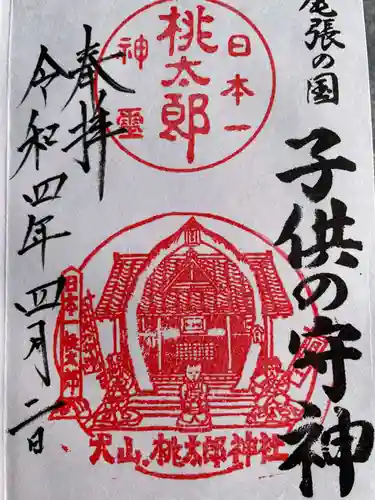 尾張の国
子供の守神
奉拝
令和四年四月二日
日本一
桃太郎
神霊
日本一
犬山.桃太郎神社